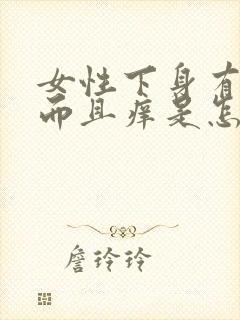 女性下身有
而且痒是怎
詹玲玲